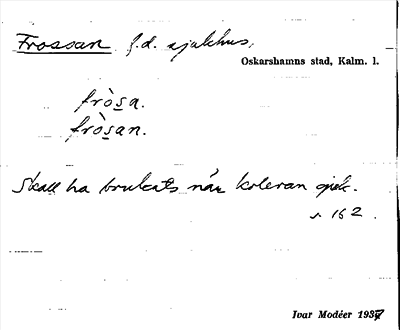 Frossan f.d. sjukhus,
Oskarshamns stad, Kalm. l.
fròsa.
fròsan.
Skall ha brukats når koleran gick.
s. 162.
Ivar Modéer 1937